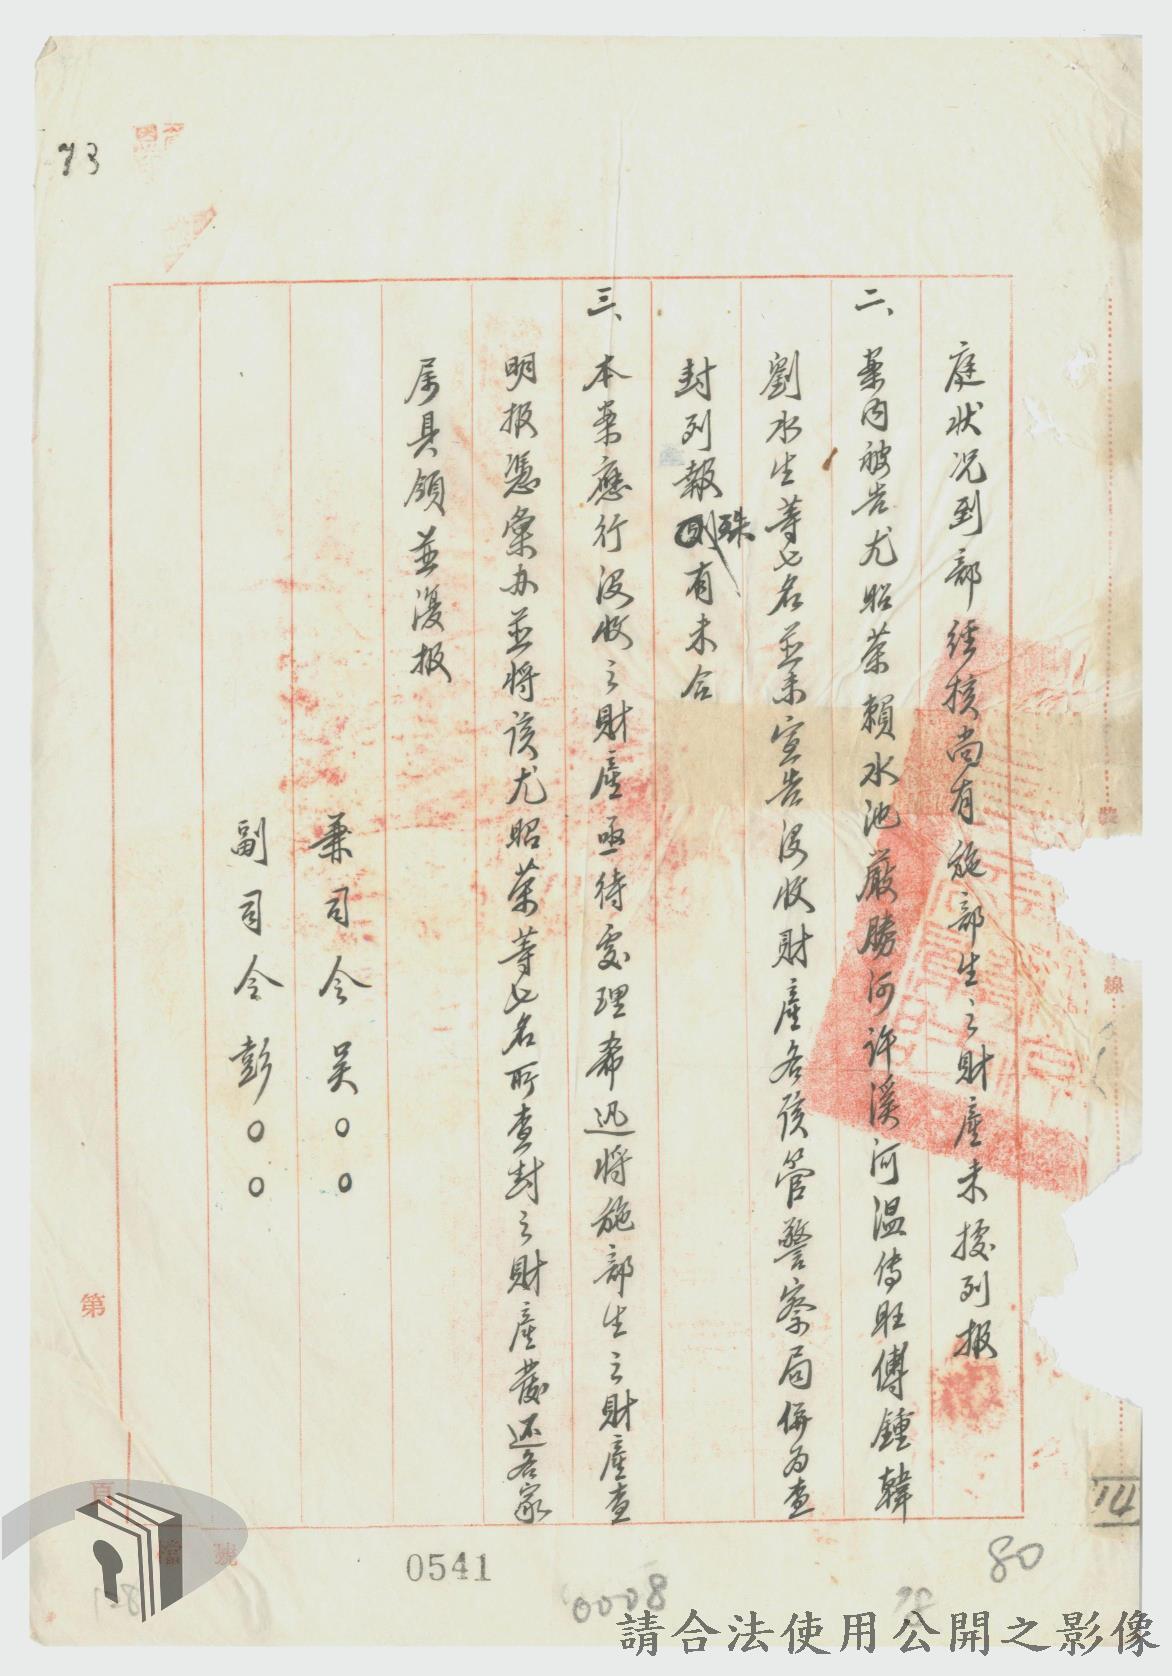 庭狀况到部經核尚有施部生之財產未據列报
二、案內被告尤昭荣賴水池嚴勝河許溪河温傳旺傅鍾韓
劉水生等七名並未宣告没收財產各該管警察局併为查
封列報殊有未合
三、本案應行没收之財產亟待處理希迅將施部生之財產查
明报憑彙办並將該尤昭荣等七名所查封之財產發还各家
属具領並復报
兼司令吴〇〇
副司令彭〇〇
73
線
第
頁
檔號
0541
0008
78
80
14
請合法使用公開之影像